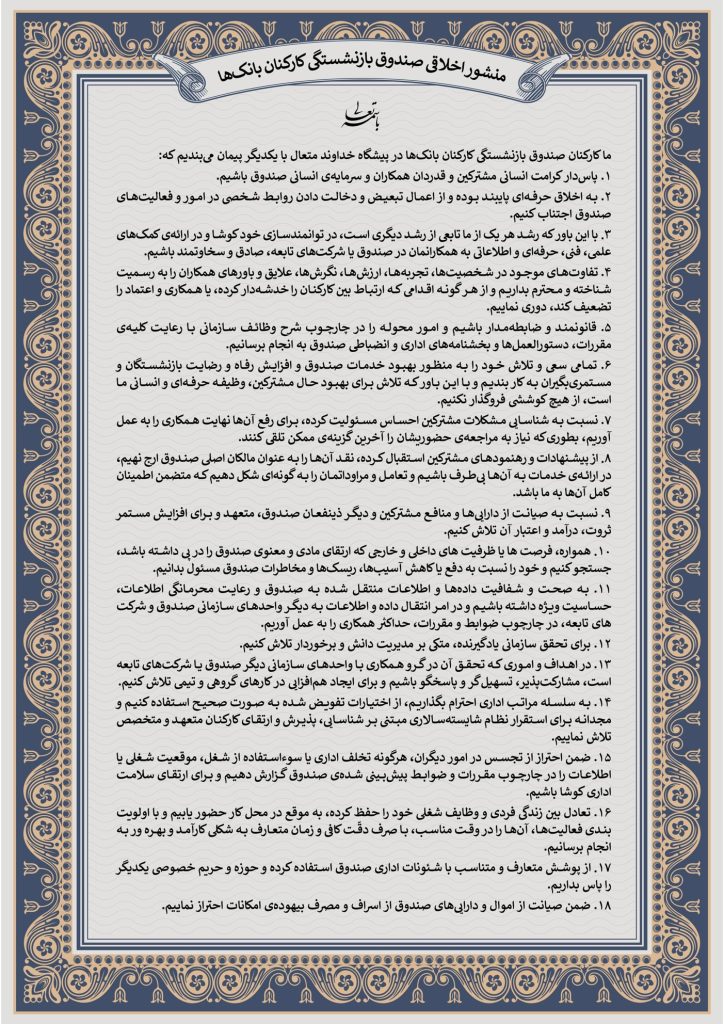 منشور اخلاقی صندوق بازنشستگی کارکنان بانک‌ها
باسمه تعالی
ما کارکنان صندوق بازنشستگی کارکنان بانک‌ها در پیشگاه خداوند متعال با یکدیگر پیمان می‌بندیم که:
۱. پاس‌دار کرامت انسانی مشترکین و قدردان همکاران و سرمایه‌ی انسانی صندوق باشیم.
۲. به اخلاق حرفه‌ای پایبند بوده و از اعمال تبعیض و دخالت دادن روابط شخصی در امور و فعالیت‌های
صندوق اجتناب کنیم.
۳. با این باور که رشد هر یک از ما تابعی از رشد دیگری است، در توانمندسازی خود کوشا و در ارائه‌ی کمک‌های
علمی، فنی، حرفه‌ای و اطلاعاتی به همکارانمان در صندوق یا شرکت‌های تابعه، صادق و سخاوتمند باشیم.
۴. تفاوت‌های موجود در شخصیت‌ها، تجربه‌ها، ارزش‌ها، نگرش‌ها، علایق و باورهای همکاران را به رسمیت
شناخته و محترم بداریم و از هر گونه اقدامی که ارتباط بین کارکنان را خدشه‌دار کرده، یا همکاری و اعتماد را
تضعیف کند، دوری نماییم.
۵. قانونمند و ضابطه‌مدار باشیم و امور محوله را در چارچوب شرح وظائف سازمانی با رعایت کلیه‌ی
مقررات، دستورالعمل‌ها و بخشنامه‌های اداری و انضباطی صندوق به انجام برسانیم.
۶. تمامی سعی و تلاش خود را به منظور بهبود خدمات صندوق و افزایش رفاه و رضایت بازنشستگان و
مستمری‌بگیران به کار بندیم و با این باور که تلاش برای بهبود حال مشترکین، وظیفه حرفه‌ای و انسانی ما
است، از هیچ کوششی فروگذار نکنیم.
۷. نسبت به شناسایی مشکلات مشترکین احساس مسئولیت کرده، برای رفع آن‌ها نهایت همکاری را به عمل
آوریم، بطوری‌که نیاز به مراجعه‌ی حضوریشان را آخرین گزینه‌ی ممکن تلقی کنند.
۸. از پیشنهادات و رهنمودهای مشترکین استقبال کرده، نقد آن‌ها را به عنوان مالکان اصلی صندوق ارج نهیم،
در ارائه‌ی خدمات به آن‌ها بی‌طرف باشیم و تعامل و مراوداتمان را به گونه‌ای شکل دهیم که متضمن اطمینان
کامل آن‌ها به ما باشد.
۹. نسبت به صیانت از دارایی‌ها و منافع مشترکین و دیگر ذینفعان صندوق، متعهد و برای افزایش مستمر
ثروت، درآمد و اعتبار آن تلاش کنیم.
۱۰. همواره، فرصت ها یا ظرفیت های داخلی و خارجی که ارتقای مادی و معنوی صندوق را در پی داشته باشد،
جستجو کنیم و خود را نسبت به دفع یا کاهش آسیب‌ها، ریسک‌ها و مخاطرات صندوق مسئول بدانیم.
۱۱. به صحت و شفافیت داده‌ها و اطلاعات منتقل شده به صندوق و رعایت محرمانگی اطلاعات،
حساسیت ویژه داشته باشیم و در امر انتقال داده و اطلاعات به دیگر واحدهای سازمانی صندوق و شرکت
های تابعه، در چارچوب ضوابط و مقررات، حداکثر همکاری را به عمل آوریم.
۱۲. برای تحقق سازمانی یادگیرنده، متکی بر مدیریت دانش و برخوردار تلاش کنیم.
۱۳. در اهداف و اموری که تحقق آن در گرو همکاری با واحدهای سازمانی دیگر صندوق یا شرکت‌های تابعه
است، مشارکت‌پذیر، تسهیل‌گر و پاسخگو باشیم و برای ایجاد هم‌افزایی در کارهای گروهی و تیمی تلاش کنیم.
۱۴. به سلسله مراتب اداری احترام بگذاریم، از اختیارات تفویض شده به صورت صحیح استفاده کنیم و
مجدانه برای استقرار نظام شایسته‌سالاری مبتنی بر شناسایی، پذیرش و ارتقای کارکنان متعهد و متخصص
تلاش نماییم.
۱۵. ضمن احتراز از تجسس در امور دیگران، هرگونه تخلف اداری یا سوءاستفاده از شغل، موقعیت شغلی یا
اطلاعات را در چارچوب مقررات و ضوابط پیش‌بینی شده‌ی صندوق گزارش دهیم و برای ارتقای سلامت
اداری کوشا باشیم.
۱۶. تعادل بین زندگی فردی و وظایف شغلی خود را حفظ کرده، به موقع در محل کار حضور یابیم و با اولویت
بندی فعالیت‌ها، آن‌ها را در وقت مناسب، با صرف دقّت کافی و زمان متعارف به شکلی کارآمد و بهره ور به
انجام برسانیم.
۱۷. از پوشش متعارف و متناسب با شئونات اداری صندوق استفاده کرده و حوزه و حریم خصوصی یکدیگر
را پاس بداریم.
۱۸. ضمن صیانت از اموال و دارایی‌های صندوق از اسراف و مصرف بیهوده‌ی امکانات احتراز نماییم.